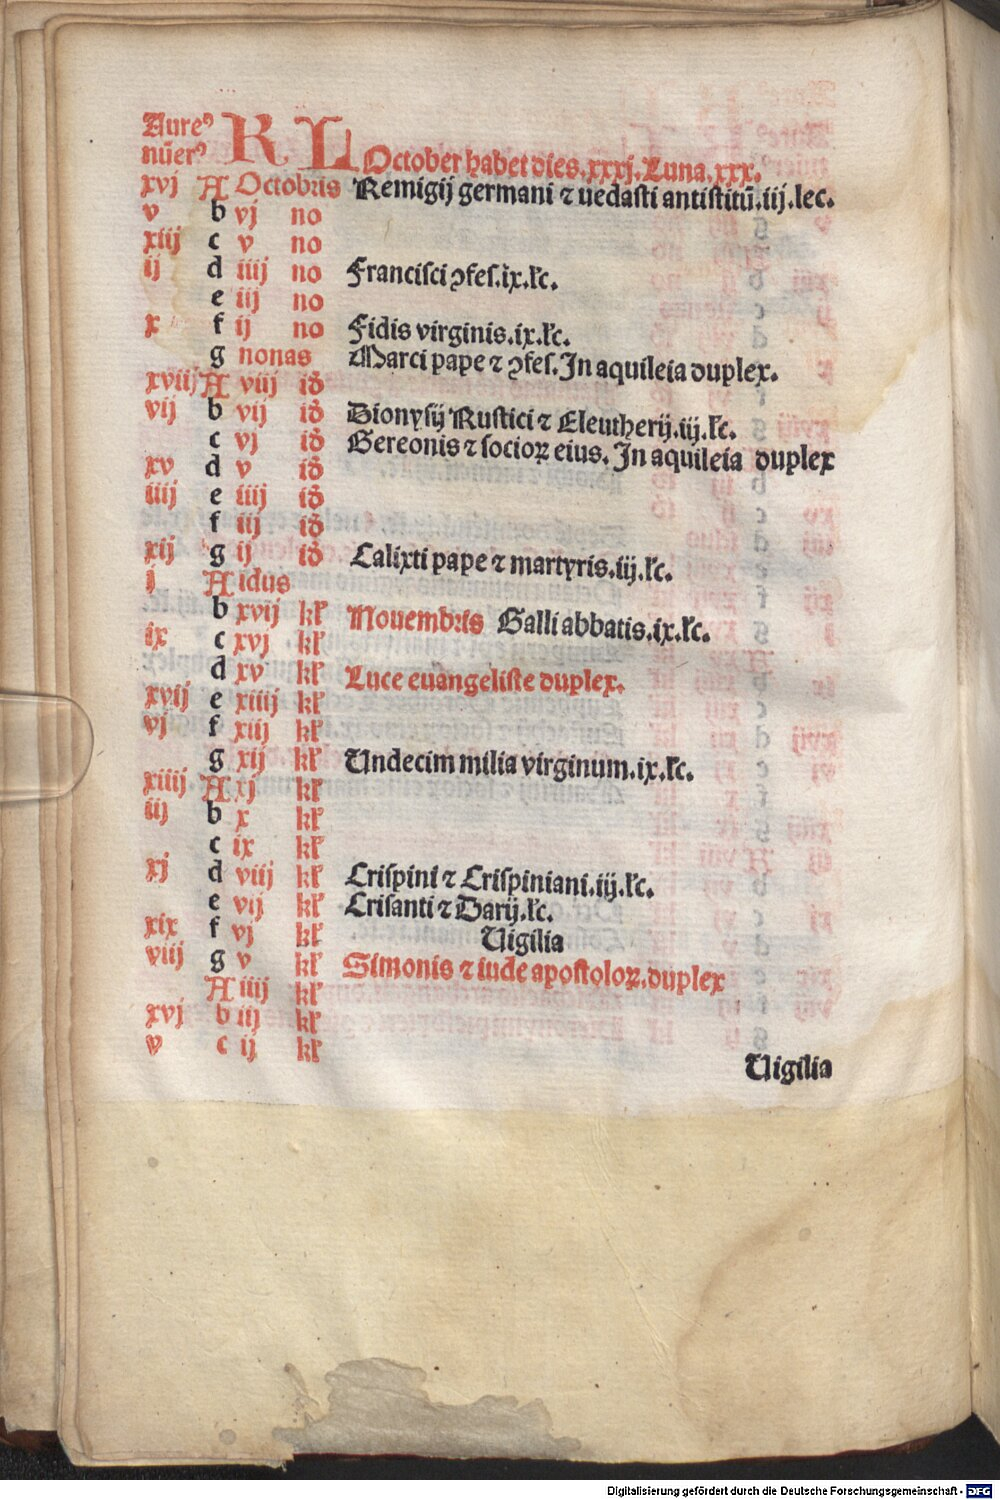 Aureꝰ
nūerꝰ KL October habet dies.xxxj.Luna.xxx.
xvj A Octobris Remigij germani ⁊ uedasti antistitū.iij.lec.
v b vj no
xiij c v no
ij d iiij no Francisci ꝯfes.ix.lc̄.
e iij no
x f ij no Fidis virginis.ix.lc̄.
g nonas Marci pape ⁊ ꝯfes.In aquileia duplex.
xviij A viij id̄
vij b vij id̄ Dionysij Rustici ⁊ Eleutherij.iij.lc̄.
c vj id̄ Gereonis ⁊ socioꝝ eius. In aquileia duplex
xv d v id̄
iiij e iiij id̄
f iij id̄
xij g ij id̄ Calixti pape ⁊ martyris.iij.lc̄.
j A idus
b xvij kl̄ Nouembris Galli abbatis.ix.lc̄.
ix c xvj kl̄
d xv kl̄ Luce euāngeliste duplex.
xvij e xiiij kl̄
vj f xiij kl̄
g xij kl̄ Undecim milia virginum.ix.lc̄.
xiiij A xj kl̄
iij b x kl̄
c ix kl̄
xj d viij kl̄ Crispini ⁊ Crispiniani.iij.lc̄.
e vij kl̄ Crisanti ⁊ Darij.lc̄.
xix f vj kl̄ Uigilia
viij g v kl̄ Simonis ⁊ iude apostoloꝝ.duplex
A iiij kl̄
xvj b iij kl̄
v c ij kl̄
Uigilia
Digitalisierung gefördert durch die Deutsche Forschungsgemeinschaft - DFG